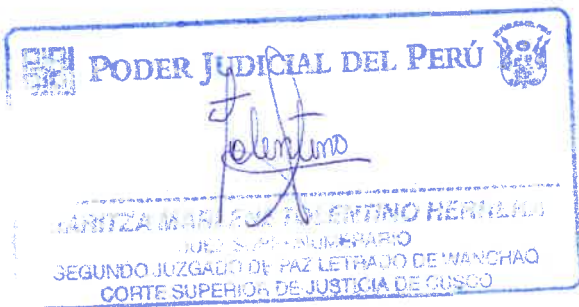 PODER JUDICIAL DEL PERÚ
Tolentino
MARITZA MARLENE TOLENTINO HERRERA
JUEZ SUPERNUMERARIO
SEGUNDO JUZGADO DE PAZ LETRADO DE WANCHAQ
CORTE SUPERIOR DE JUSTICIA DE CUSCO